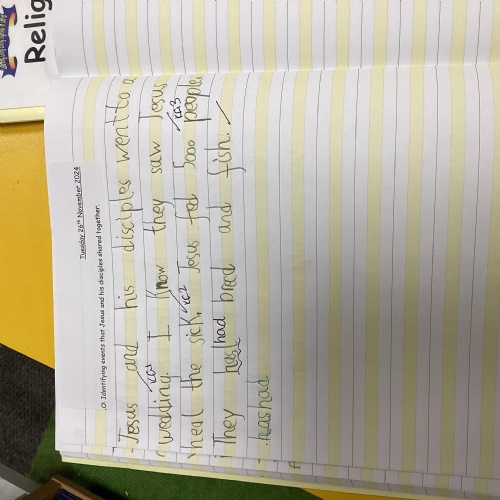 Relig
Tuesday 26th November 2024
.O: Identifying events that Jesus and his disciples shared together.
Jesus and his disciples went to a
wedding. I know they saw Jesus
heal the sick. Jesus fed 5000 people.
They has had bread and fish.
has had